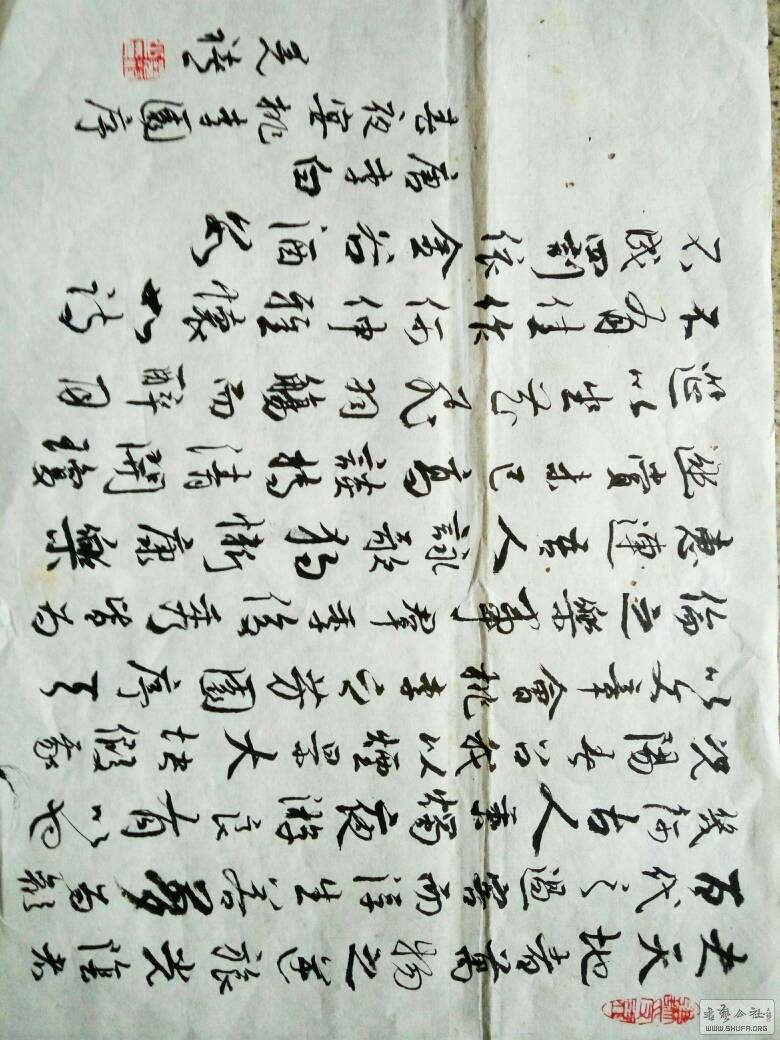 夫天地者萬物之逆旅光陰者
百代之過客而浮生若夢為歡
幾何古人秉燭夜游良有以也
況陽春召我以煙景大塊假我
以文章會桃李之芳園序天
倫之樂事群季俊秀皆為
惠連吾人詠歌獨慚康樂
幽賞未已高談轉清開瓊
筵以坐花飛羽觴而醉月
不有佳作何伸雅懷如詩
不成罰依金谷酒數
唐李白
春夜宴桃李園序
书艺公社
WWW.SHUFA.ORG